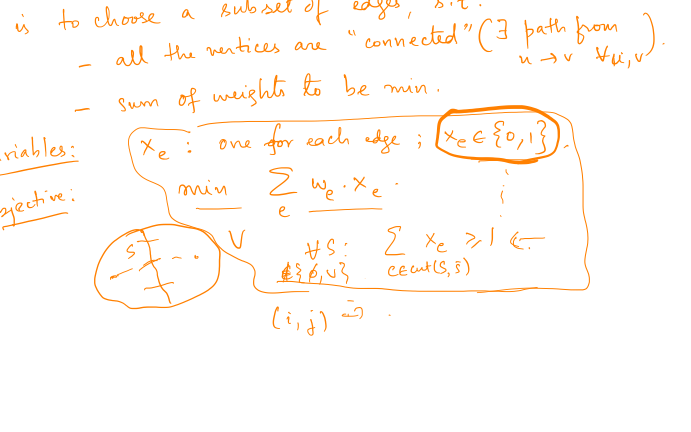 is to choose a subset of edges, s.t.
- all the vertices are "connected" (∃ path from u → v ∀u,v).
- sum of weights to be min.
riables: x_e : one for each edge ; x_e ∈ {0,1}.
jective: min Σ_e w_e · x_e .
S V ∀S: ∉{ϕ,V} Σ_{e∈cut(S,S̄)} x_e ⩾ 1 ←
(i,j) ⇒ .